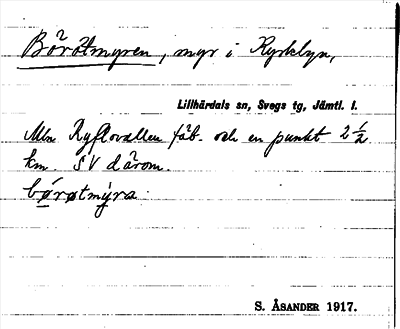 Börötmyren, myr i Kyrkbyn,
Lillhärdals sn, Svegs tg, Jämtl. l.
Mln Ryflovallen fäb. och en punkt 2½
km. SV därom.
børøtmýra
S. ÅSANDER 1917.